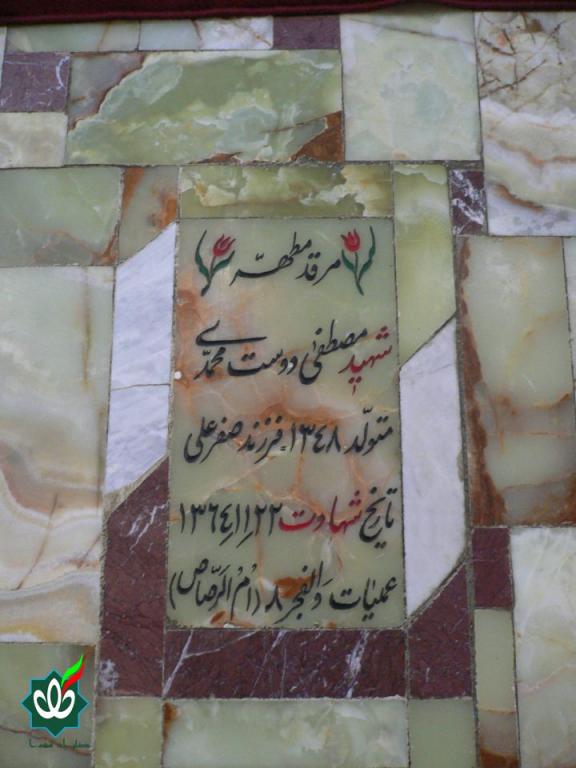 مرقد مطهّر
شهید مصطفیٰ دوست محمّدی
متولّد ۱۳۴۸-فرزند صفرعلی
تاریخ شهادت ۱۳۶۴/۱۱/۲۲
عملیات والفجر ۸ (اُمّ الرّصاص)